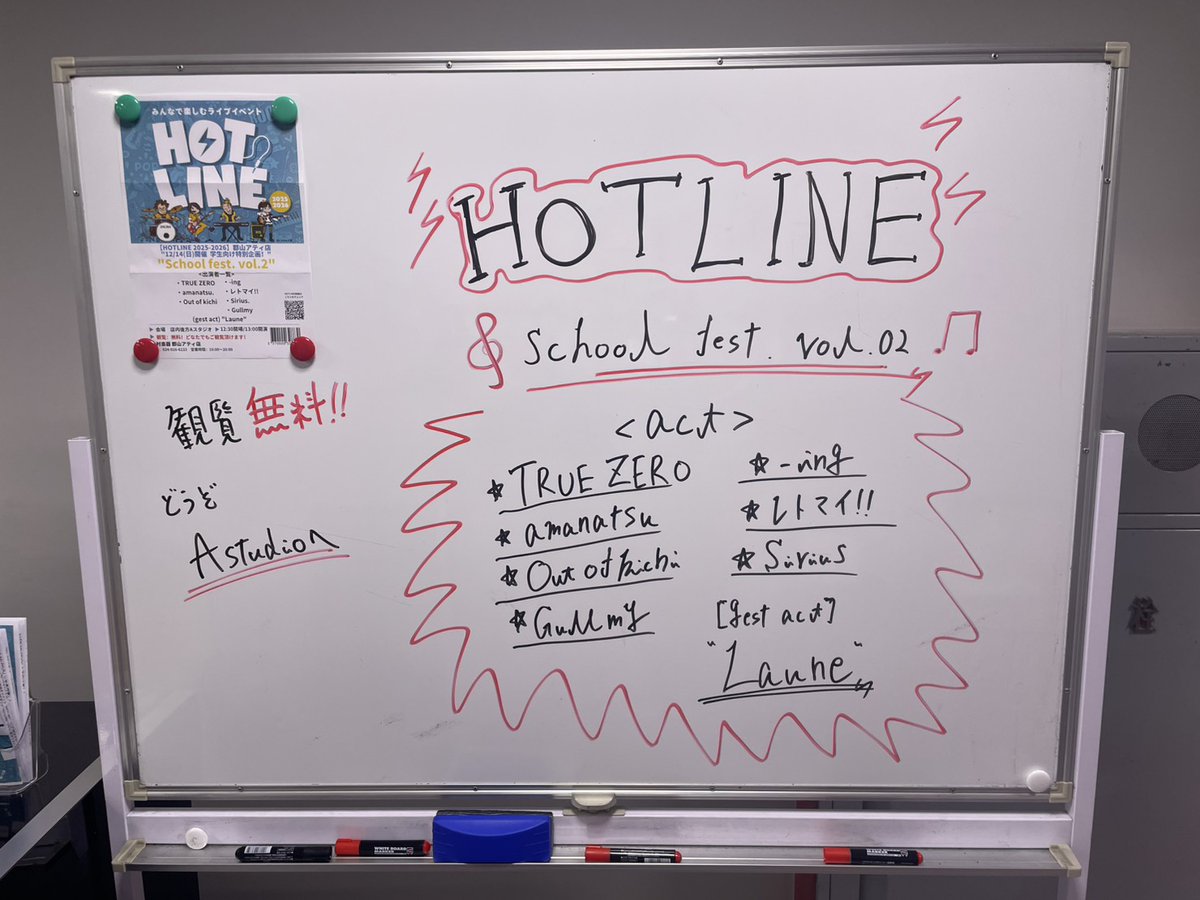 みんなで楽しむライブイベント
HOT
LINE
2025
2026
【HOTLINE 2025-2026】郡山アティ店
"12/14(日)開催 学生向け特別企画!"
"School fest. vol.2"
<出演者一覧>
・TRUE ZERO ・-ing
・amanatsu. ・レトマイ!!
・Out of kichi ・Sirius.
・Gullmy
(gest act) "Laune"
▶ 会場 店内後方Aスタジオ ▶ 12:30開場/13:00開演
▶ 観覧:無料!どなたでもご観覧頂けます!
村楽器 郡山アティ店
HOTLINE
School fest. vol.02
観覧無料!!
どうぞ
Astudioへ
<act>
☆TRUE ZERO
☆amanatsu
☆Out of kichi
☆Gullmy
☆-ing
☆レトマイ!!
☆Sirius
[gest act]
"Laune"
WHITE BOARD
MARKER